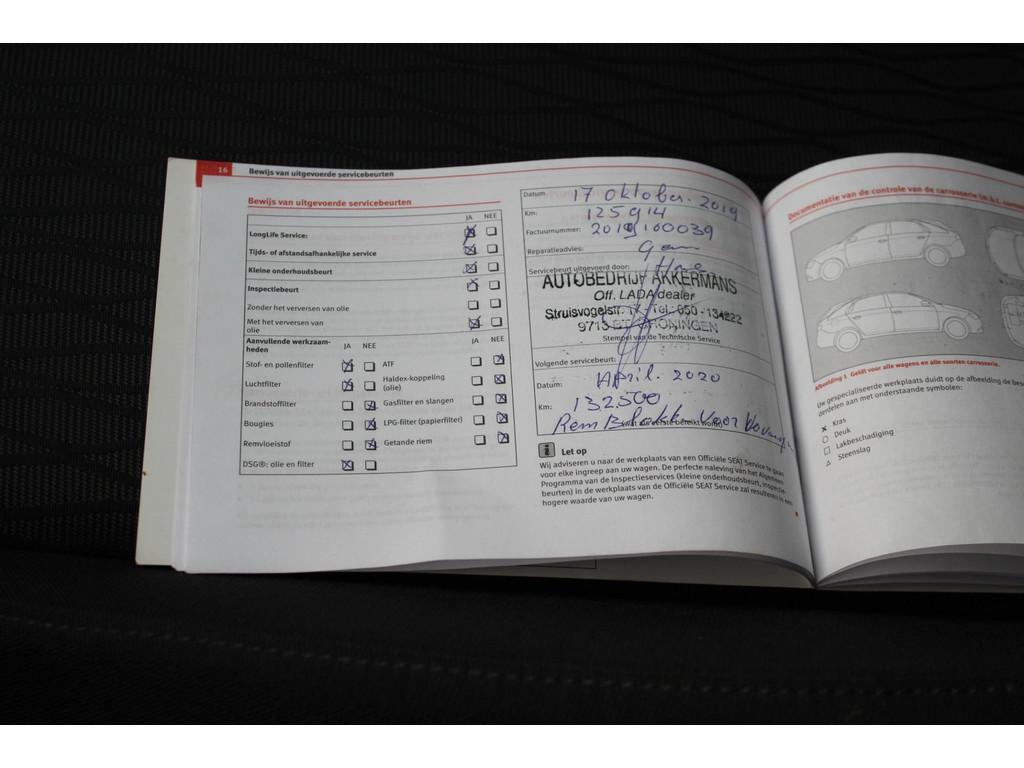 16 Bewijs van uitgevoerde servicebeurten
Bewijs van uitgevoerde servicebeurten
JA NEE
LongLife Service:
Tijds- of afstandsafhankelijke service
Kleine onderhoudsbeurt
Inspectiebeurt
Zonder het verversen van olie
Met het verversen van
olie
Aanvullende werkzaam-
heden
JA NEE
JA NEE
Stof- en pollenfilter
ATF
Luchtfilter
Haldex-koppeling
(olie)
Brandstoffilter
Gasfilter en slangen
Bougies
LPG-filter (papierfilter)
Remvloeistof
Getande riem
DSG®: olie en filter
Datum: 17 Oktober. 2019
Km: 125914
Factuurnummer: 2019100039
Reparatieadvies:
Servicebeurt uitgevoerd door:
AUTOBEDRIJF AKKERMANS
Off. LADA dealer
Struisvogelstr. 17, Tel. 050 - 134822
9713 BT GRONINGEN
Stempel van de Technische Service
Volgende servicebeurt:
Datum: April. 2020
Km: 132500
Rem Blokken Voor
Let op
Wij adviseren u naar de werkplaats van een Officiële SEAT Service te gaan
voor elke ingreep aan uw wagen. De perfecte naleving van het Algemeen
Programma van de Inspectieservices (kleine onderhoudsbeurt, inspectie-
beurten) in de werkplaats van de Officiële SEAT Service zal resulteren in een
hogere waarde van uw wagen.
Documentatie van de controle van de carrosserie
Afbeelding 1 Geldt voor alle wagens en alle soorten carrosserie.
Uw gespecialiseerde werkplaats duidt op de afbeelding de
derdelen aan met onderstaande symbolen:
Kras
Deuk
Lakbeschadiging
Steenslag